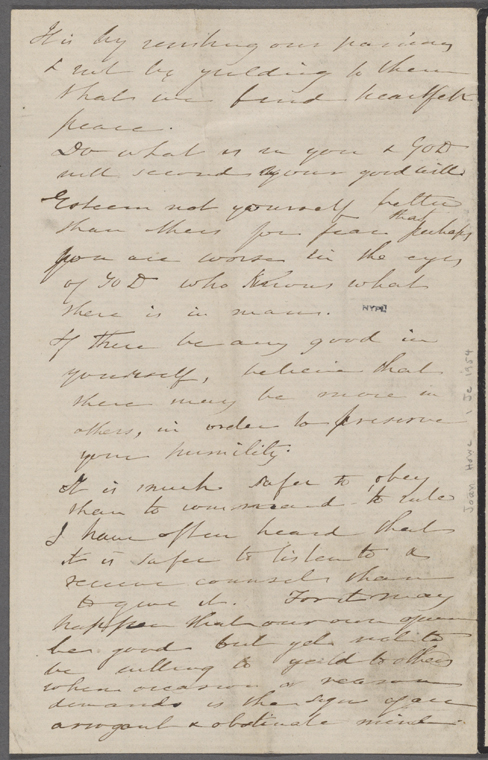 It is by resisting our passions
& not by yielding to them
that we find heartfelt
peace.
Do what is in you & GOD
will second your good will
Esteem not yourself better
than others for fear that perhaps
you are worse in the eyes
of GOD who knows what
there is in man.
NYPL
If there be any good in
yourself, believe that
there may be more in
others, in order to preserve
your humility.
It is much safer to obey
than to command to rule
I have often heard that
it is safer to listen to &
receive counsels than
to give it. For it may
happen that our own opinion
be good but yet not to
be willing to yield to others
when occasion & reason
demands is the sign of an
arrogant & obstinate mind.
Joan Howe 1 Je 1954